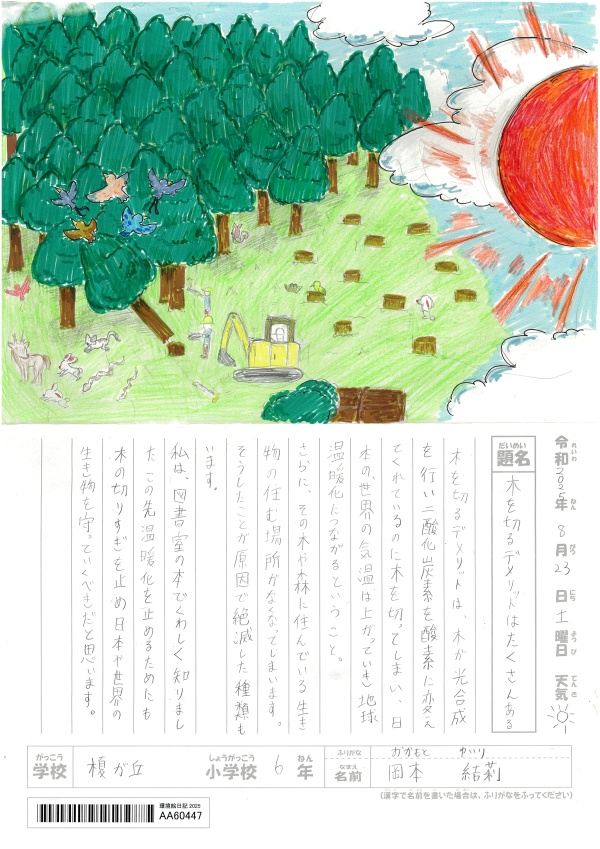 令和2025年8月23日土曜日 天気
れいわ ねん がつ にち ようび てんき
だいめい
題名 木を切るデメリットはたくさんある
木を切るデメリットは、木が光合成
を行い二酸化炭素を酸素に変え
てくれているのに木を切ってしまい、日
本の、世界の気温は上がっていき地球
温暖化につながるということ。
さらに、その木や森に住んでいる生き
物の住む場所がなくなってしまいます。
そうしたことが原因で絶滅した種類も
います。
私は、図書室の本でくわしく知りまし
たこの先温暖化を止めるためにも
木の切りすぎを止め日本や世界の
生き物を守っていくべきだと思います。
がっこう しょうがっこう ねん ふりがな おかもと ゆいり
学校 榎が丘 小学校 6年 なまえ 名前 岡本 結莉
(漢字で名前を書いた場合は、ふりがなをふってください)
環境絵日記 2025
AA60447